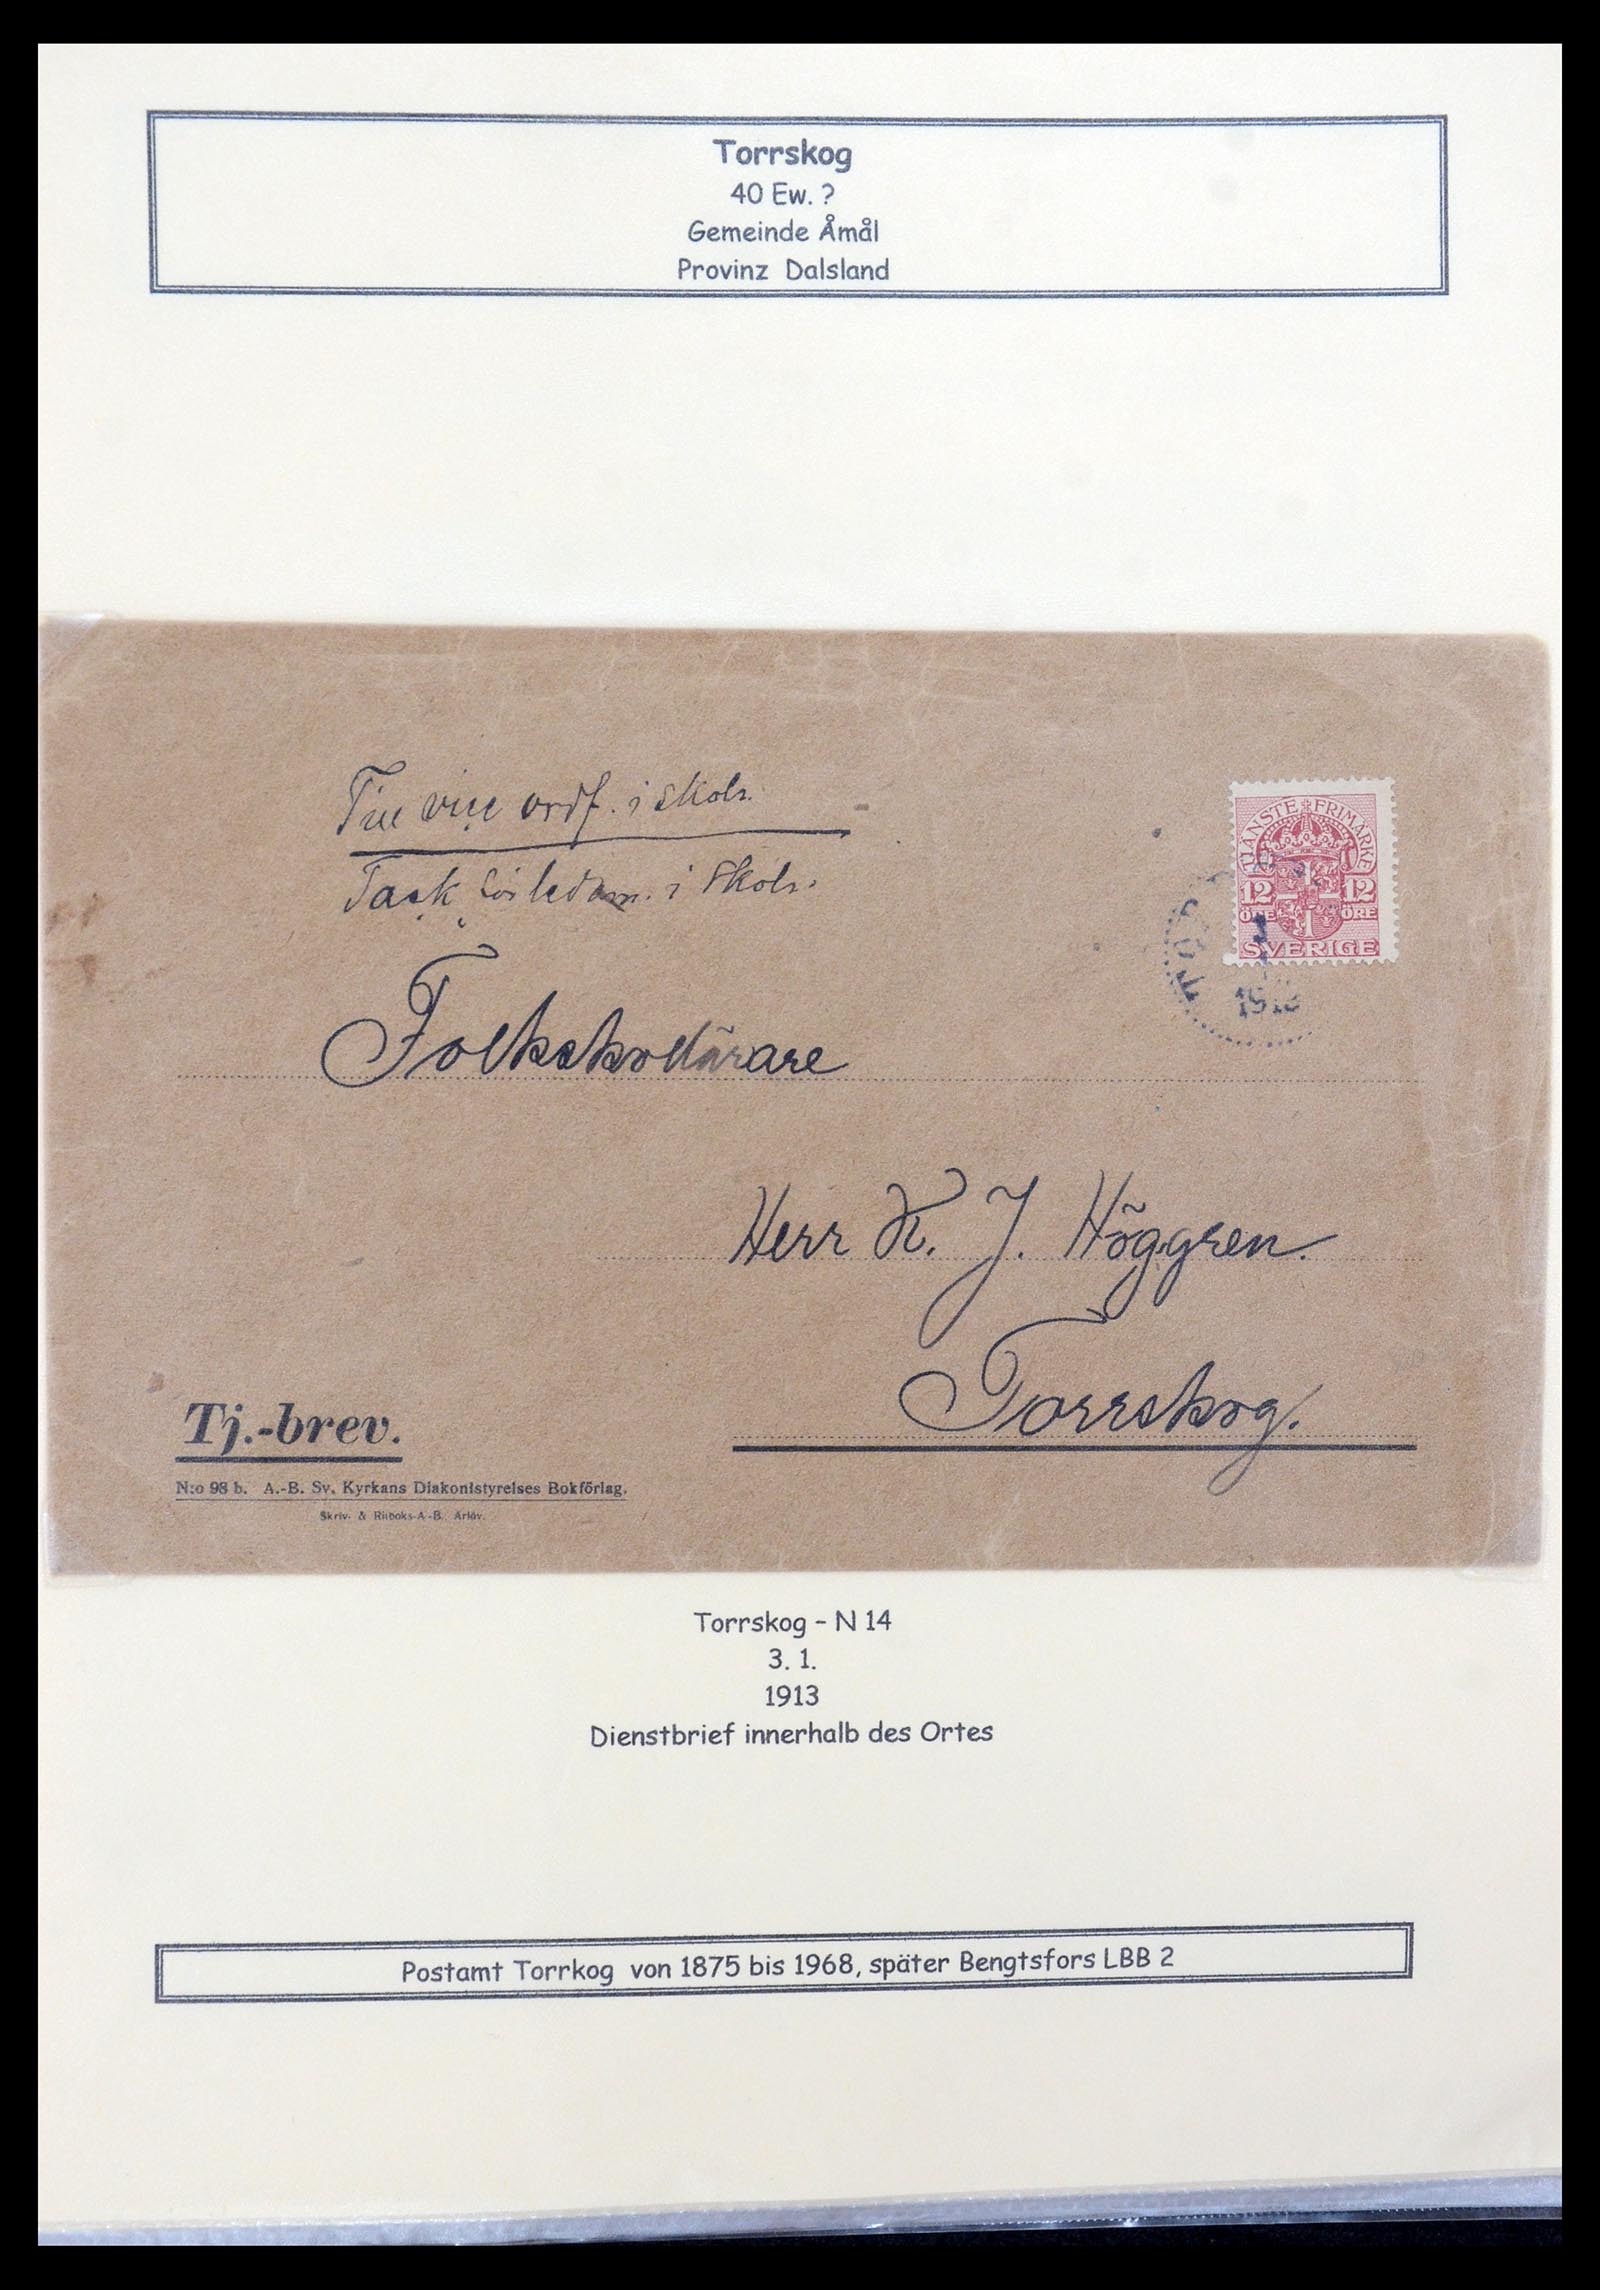 Torrskog
40 Ew. ?
Gemeinde Åmål
Provinz Dalsland
TJÄNSTE FRIMÄRKE
12 12
ÖRE ÖRE
SVERIGE
1913
Till vice ordf. i skolr.
Tack i skolr.
Folkskollärare
Herr K. J. Höggren.
Torrskog.
Tj.-brev.
N:o 98 b. A.-B. Sv. Kyrkans Diakonistyrelses Bokförlag.
Skriv- & Ritboks-A.-B. Arlöv.
Torrskog – N 14
3. 1.
1913
Dienstbrief innerhalb des Ortes
Postamt Torrkog von 1875 bis 1968, später Bengtsfors LBB 2